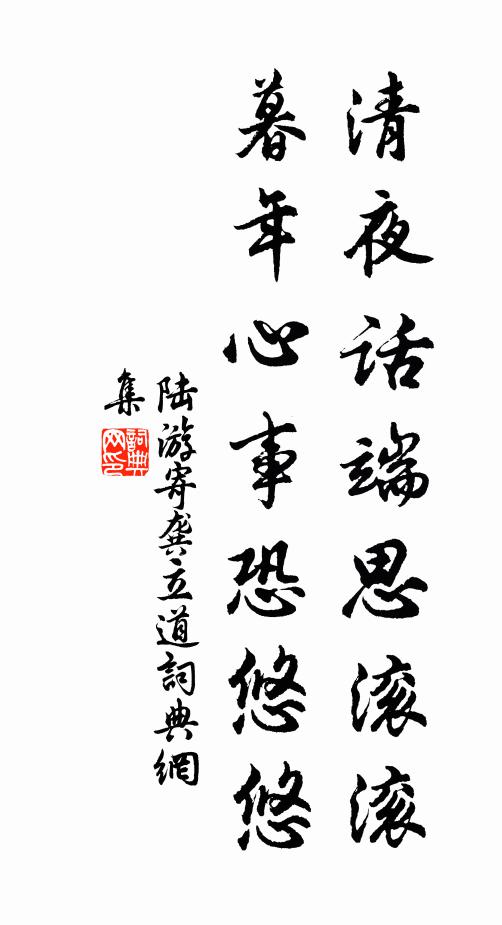 清夜話端思滚滚
暮年心事恐悠悠
陆游寄龚立道詞典網
集
詞典
网印